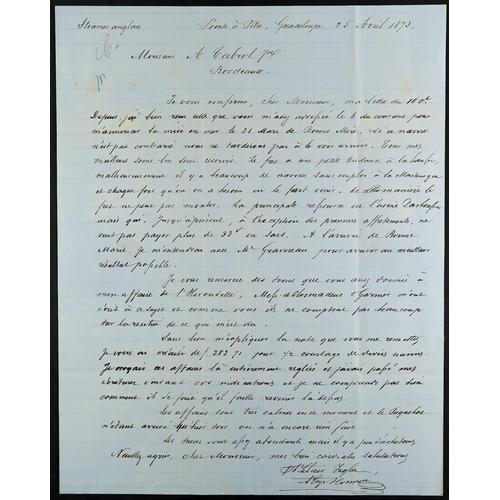 Steamer anglais Pointe à Pitre, Guadeloupe, 25 Avril 1873.
Monsieur A Cabrol Jne
Bordeaux.
Je vous confirme, cher Monsieur, ma lettre du 10 ct.
Depuis j'ai bien reçu celle que vous m'avez adressée le 6 du courant pour
m'annoncer la mise en mer le 21 Mars de Bonne Mère. Si ce navire
n'est pas contrarié nous ne tarderons pas à le voir arriver. Tous mes
meilleurs soins lui sont reservés. Le fret a une petite tendance à la hausse,
malheureusement il y a beaucoup de navires sans emploi à la Martinique
et chaque fois qu'on en a besoin on le fait venir. De cette manière le
fret ne peut pas monter. La principale ressource est l'usine Darboussier
mais qui, jusqu'à présent, à l'exception des premiers affretements, ne
veut pas payer plus de en sacs. A l'arrivée de Bonne
Marie je m'entendrai avec Mr pour arriver au meilleur
résultat possible.
Je vous remercie des soins que vous avez donnés à
mon affaire de l'Hirondelle, Mess. m'ont
écrit à ce sujet et comme vous ils ne comptent pas beaucoup
sur la rentrée de ce qui m'est dû.
Sans bien m'expliquer la note que vous me remettez
Je vous ai crédité de f. 283.71 pour de divers navires.
Je croyais ces affaires là entièrement reglées et j'avais passé mes
écritures suivant vos indications et je ne comprends pas bien
comment il se fait qu'il faille revenir là dessus.
Les affaires sont très calmes en ce moment et le
n'étant arrivé qu'hier soir on n'a encore rien fait.
Les sucres sont assez abondants mais il y a peu d'acheteurs.
Veuillez agréer, cher Monsieur, mes bien cordiales salutations